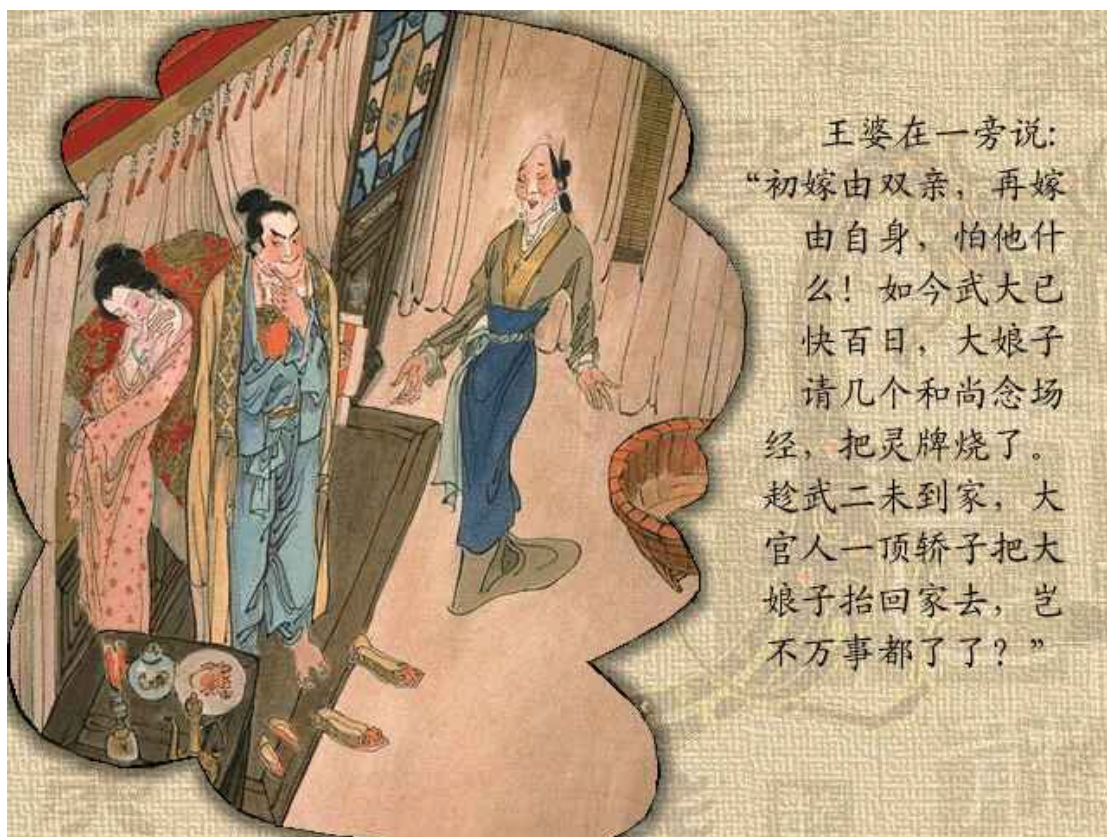 王婆在一旁说:
“初嫁由双亲，再嫁
由自身，怕他什
么！如今武大已
快百日，大娘子
请几个和尚念场
经，把灵牌烧了。
趁武二未到家，大
官人一顶轿子把大
娘子抬回家去，岂
不万事都了了？”